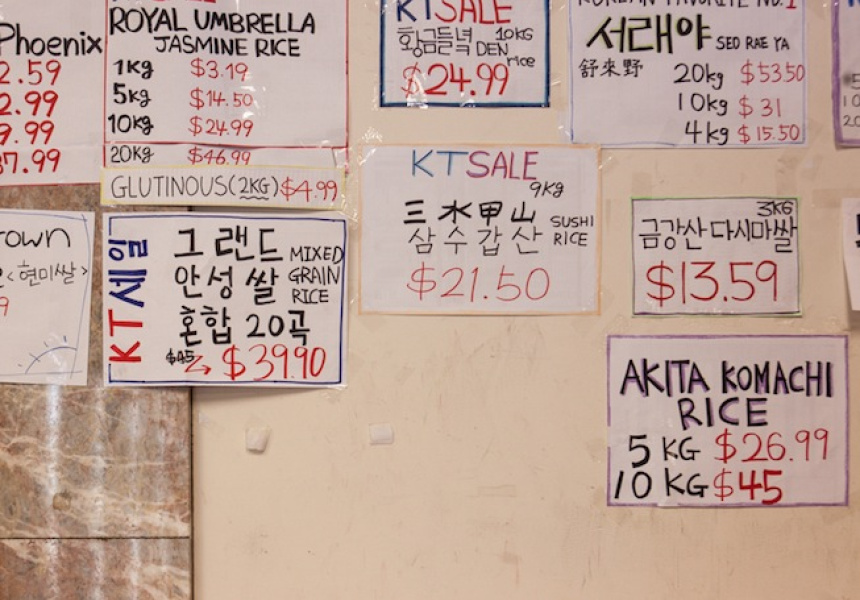 Phoenix
2.59
2.99
9.99
37.99
ROYAL UMBRELLA
JASMINE RICE
1kg $3.19
5kg $14.50
10kg $24.99
20kg $46.99
GLUTINOUS(2KG) $4.99
KT SALE
황금들녘 10KG
DEN rice
$24.99
KOREAN FAVORITE NO.1
서래야 SEO RAE YA
舒來野 20kg $53.50
10kg $31
4kg $15.50
own
<현미쌀>
9
KT세일
그랜드
안성쌀
혼합 20곡
MIXED
GRAIN
RICE
$45 → $39.90
KT SALE
9kg
三水甲山
삼수갑산
SUSHI
RICE
$21.50
3KG
금강산 다시마쌀
$13.59
AKITA KOMACHI
RICE
5 KG $26.99
10 KG $45